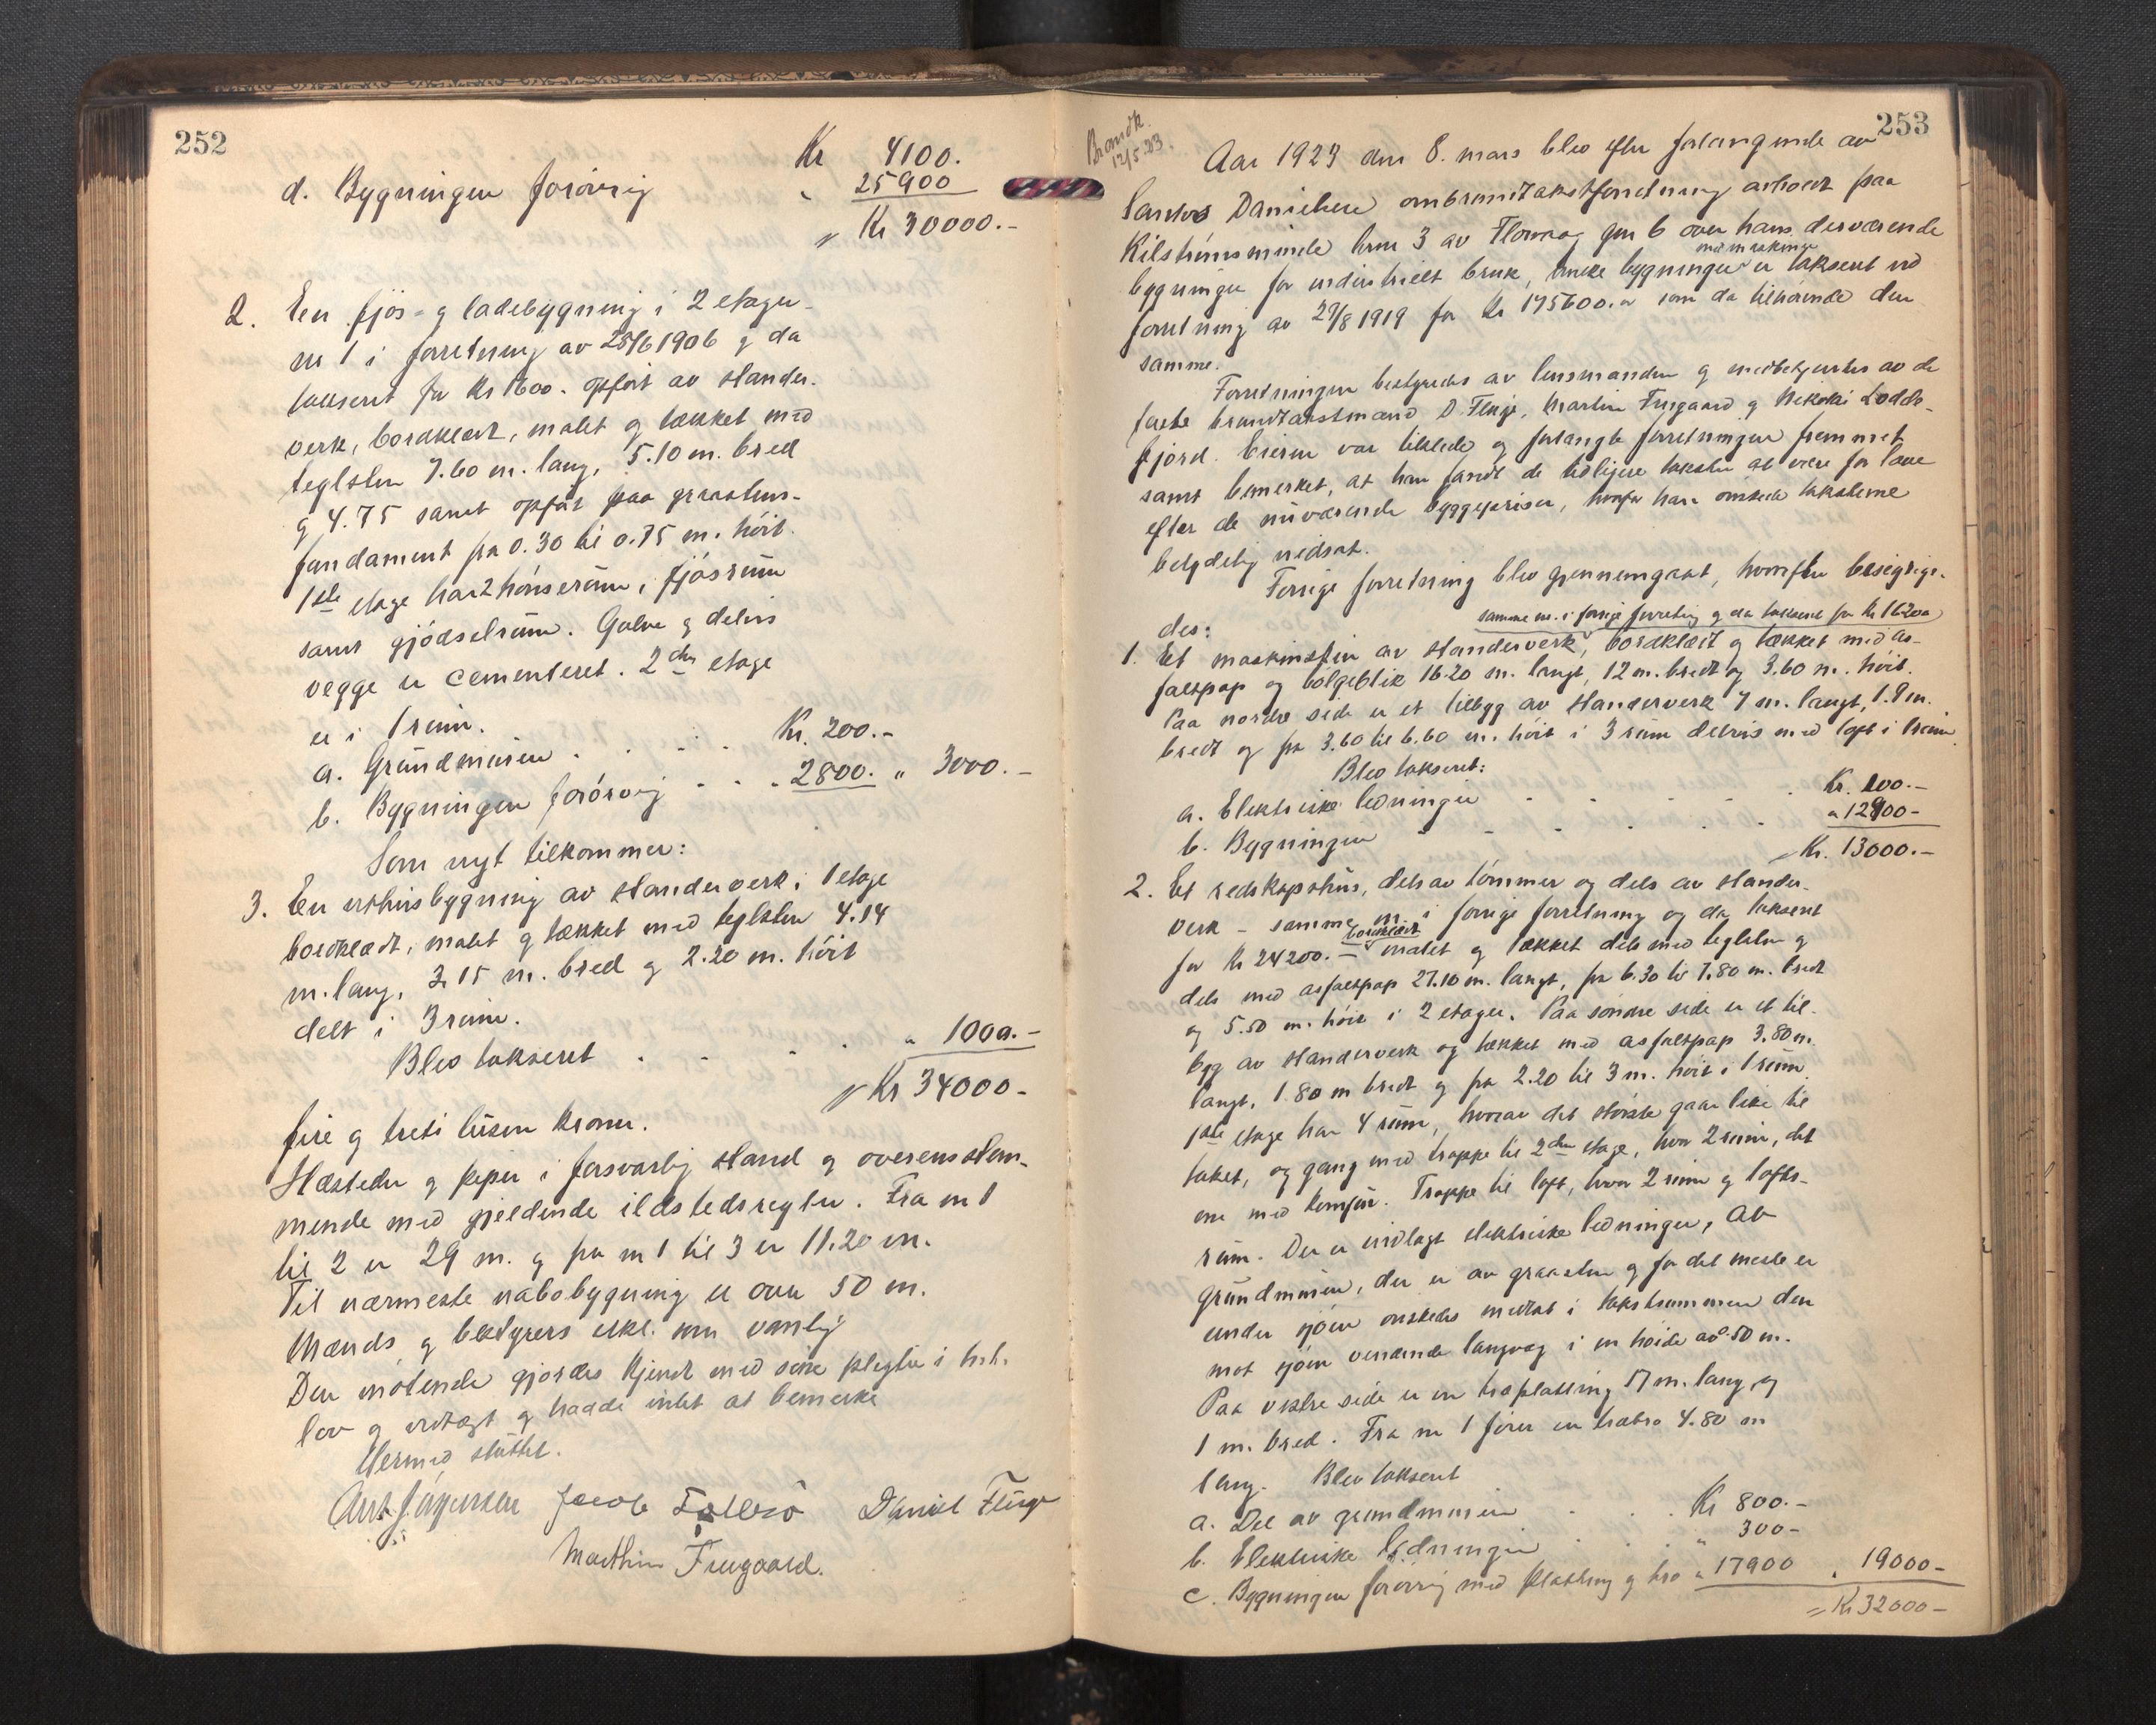 252
Kr 4100.
d. Bygningen forøvrig " 25900
Kr 30000.-
2. En fjøs- og ladebygning i 2 etager
nr 1 i forretning av 25/6 1906 og da
takseret for Kr 1600.- opført av stender-
verk, bordklædt, malet og tækket med
teglsten 7.60 m. lang, 5.10 m. bred
og 4.75 samt opført paa graastens-
fundament fra 0.30 til 0.75 m. høit.
1ste etage har 2 hønserum, fjøsrum
samt gjødselrum. Gulve og delvis
vegge er cementeret. 2den etage
er i 1 rum.
a. Grundmuren . . . . Kr. 200.-
b. Bygningen forøvrig . . . 2800. " 3000.-
Som nyt tilkommer:
3. En uthusbygning av stenderverk i 1 etage
bordklædt, malet og tækket med teglsten 4.14
m. lang, 3.15 m. bred og 2.20 m. høit
delt i 3 rum.
Blev takseret . . . . " 1000.-
Kr 34000-
fire og treti tusen kroner.
Ildsteder og piper i forsvarlig stand og overensstem-
mende med gjeldende ildstedsregler. Fra nr 1
til 2 er 29 m. og fra nr 1 til 3 er 11.20 m.
Til nærmeste nabobygning er over 50 m.
Mænds og bestyrers erkl. som vanlig
Den møtende gjordes kjendt med sine plegter i h.t.
lov og vedtægt og hadde intet at bemerke
Hermed sluttet.
Jacob Daniel Fluge
Marthin Frugaard.
253
Brandk.
12/5-23.
Aar 1923 den 8. mars blev efter forlangende av
Danielsen ombrandtakstforretning avholdt paa
Kilstrømsminde brnr 3 av Florvaag gnr 6 over hans derværende
med maskiner
bygninger for industrielt bruk, hvilke bygninger er takseret ved
forretning av 29/8 1919 for Kr 175600.- som da tilhørende den
samme.
Forretningen bestyredes av lensmanden og medbetjentes av de
faste brandtakstmænd D. Fluge, Martin Frugaard og Nikolai Lodde-
fjord. Eieren var tilstede og forlangte forretningen fremmet
samt bemerket, at han fandt de tidligere takster at være for lave
efter de nuværende byggepriser, hvorfor han ønskede taksterne
betydelig nedsat.
Forrige forretning blev gjennemgaat, hvorefter besigtige-
des:
samme nr. i forrige forretning og da takseret for Kr 16200
1. Et maskinstein av stenderverk, bordklædt og tækket med as-
faltpap og bølgeblik 16.20 m. langt, 12 m. bredt og 3.60 m. høit.
Paa nordre side er et tilbygg av stenderverk 7 m. langt, 1.9 m.
bredt og fra 3.60 til 6.60 m. høit i 3 rum delvis med loft i 1 rum
Blev takseret:
a. Elektriske ledninger . . . . . Kr. 100.-
b. Bygningen . . . . . " 12900-
Kr. 13000.-
2. Et redskapshus, dels av tømmer og dels av stender-
verk - samme nr. i forrige forretning og da takseret
bordklædt
for Kr 24200.- malet og tækket dels med teglsten og
dels med asfaltpap 27.10 m. langt, fra 6.30 til 7.80 m. bredt
og 5.50 m. høit i 2 etager. Paa søndre side er et til-
byg av stenderverk og tækket med asfaltpap 3.80 m.
langt, 1.80 m bredt og fra 2.20 til 3 m. høit i 1 rum.
1ste etage har 4 rum, hvorav det største gaar like til
taket, og gang med trappe til 2den etage, hvor 2 rum, det
ene med komfur. Trappe til loft, hvor 2 rum og lofts-
rum. Der er indlagt elektriske ledninger, Av
grundmuren, der er av graasten og for det meste er
under sjøen ønskedes medtat i takstsummen den
mot sjøen vendende langvæg i en høide av 0.50 m.
Paa vestre side er en træplatting 17 m. lang og
1 m. bred. Fra nr 1 fører en træbro 4.80 m
lang. Blev takseret
a. Del av grundmuren . . . Kr 800.-
b. Elektriske ledninger . . . " 300-
c. Bygningen forøvrig med platting og bro " 17900 " 19000-
= Kr 32000-